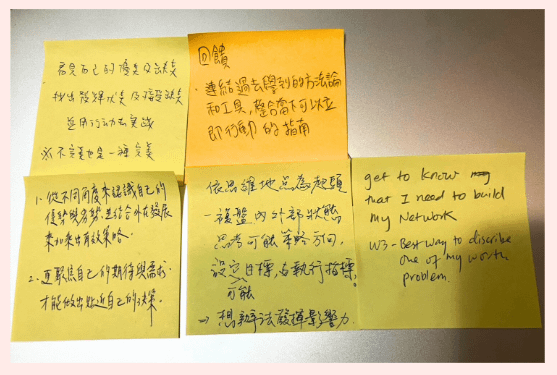 看見自己的優點及缺點
找出發揮優點及接受缺點
並用行動去實踐
不完美也是一種完美
回饋
· 連結過去學到的方法論
和工具,整合當下可以立
即行動的指南
1. 從不同角度來認識自己的
優勢與劣勢,並結合外在發展
來加策略。
2. 更聚焦自己的期待與需求,
才能做出貼近自己的決策。
依思維地點為起頭
- 複盤內外部狀態
思考可能策略方向,
設定目標,与執行指標。
可能
⇒ 想辦法發揮影響力
get to know
that I need to build
my Network
W3 - Best way to discribe
one of my worth
problem.